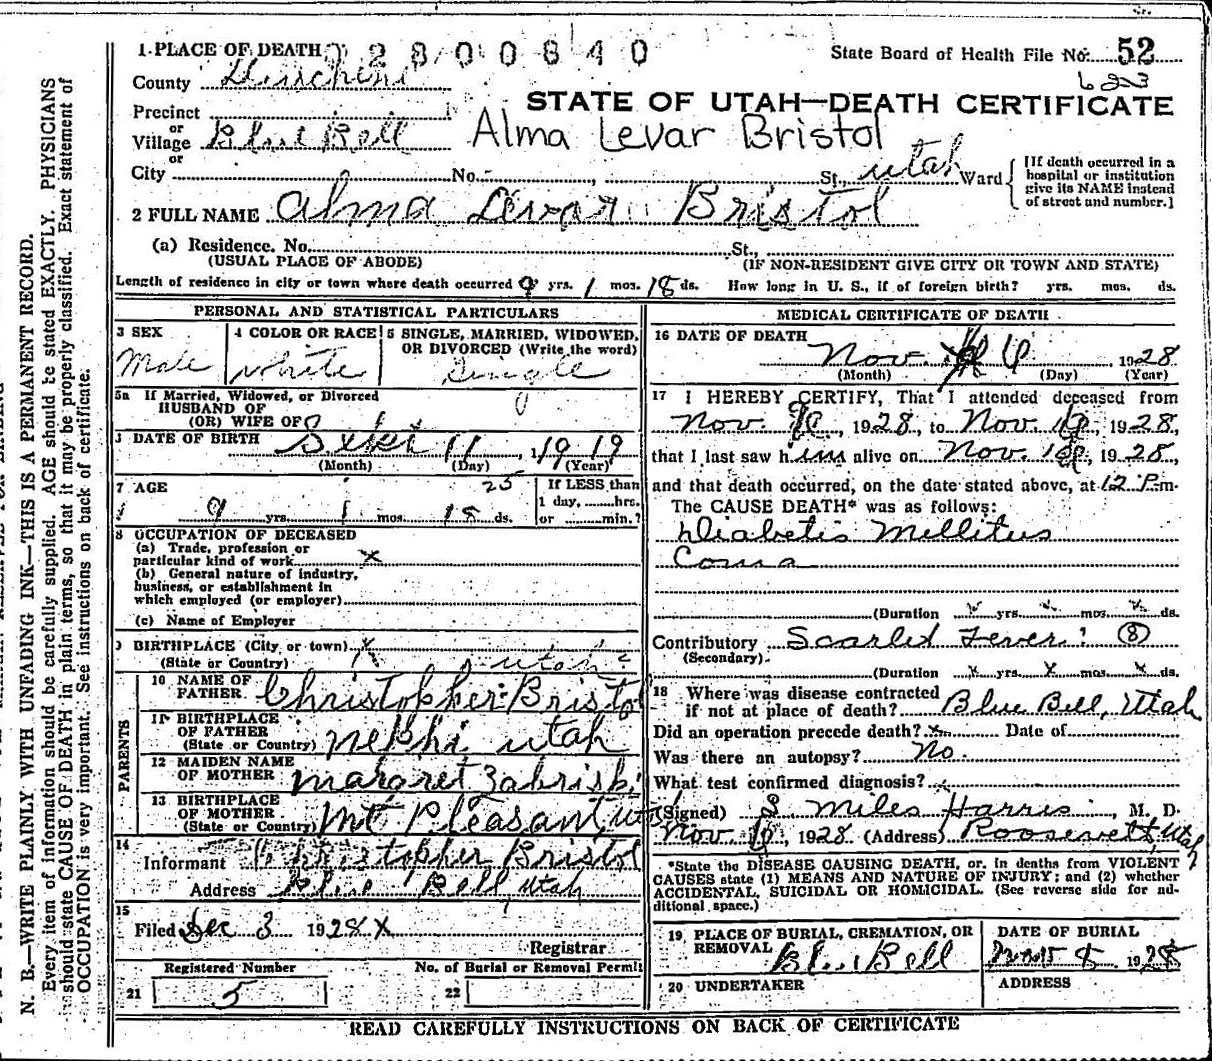 1 PLACE OF DEATH 2800840
State Board of Health File No. 52
County Duschene
623
STATE OF UTAH—DEATH CERTIFICATE
Precinct
or
Village Blue Bell Alma Levar Bristol
or
City No. St., Utah Ward
[If death occurred in a
hospital or institution
give its NAME instead
of street and number.]
2 FULL NAME Alma Levar Bristol
(a) Residence. No. St.,
(USUAL PLACE OF ABODE) (IF NON-RESIDENT GIVE CITY OR TOWN AND STATE)
Length of residence in city or town where death occurred 9 yrs. 1 mos. 18 ds. How long in U. S., if of foreign birth? yrs. mos. ds.
PERSONAL AND STATISTICAL PARTICULARS
3 SEX
Male
4 COLOR OR RACE
White
5 SINGLE, MARRIED, WIDOWED,
OR DIVORCED (Write the word)
Single
5a If Married, Widowed, or Divorced
HUSBAND OF
(OR) WIFE OF
DATE OF BIRTH Sekt 11, 1919
(Month) (Day) (Year)
7 AGE 25
9 yrs. 1 mos. 18 ds.
If LESS than
1 day, hrs.
or min.?
8 OCCUPATION OF DECEASED
(a) Trade, profession or
particular kind of work x
(b) General nature of industry,
business, or establishment in
which employed (or employer)
(c) Name of Employer
BIRTHPLACE (City or town) x
(State or Country) Utah
PARENTS
10 NAME OF
FATHER Christopher Bristol
11 BIRTHPLACE
OF FATHER
(State or Country) Nephi Utah
12 MAIDEN NAME
OF MOTHER Margret Zabriski
13 BIRTHPLACE
OF MOTHER
(State or Country) Mt Pleasant Ut
14
Informant Christopher Bristol
Address Blue Bell, Utah
15
Filed Dec 3 1928 X
Registrar
Registered Number No. of Burial or Removal Permit
21 5 22
MEDICAL CERTIFICATE OF DEATH
16 DATE OF DEATH
Nov. 1928
(Month) (Day) (Year)
17 I HEREBY CERTIFY, That I attended deceased from
Nov. , 1928, to Nov. , 1928,
that I last saw him alive on Nov. , 1928,
and that death occurred, on the date stated above, at 12 P.m.
The CAUSE DEATH* was as follows:
Diabetis Mellitus
Coma
(Duration x yrs. x mos. x ds.
Contributory Scarled Fever 8
(Secondary)
(Duration x yrs. x mos. x ds.
18 Where was disease contracted
if not at place of death? Blue Bell, Utah
Did an operation precede death? x Date of
Was there an autopsy? No.
What test confirmed diagnosis?
(Signed) S. Miles Harris, M. D.
Nov. , 1928 (Address) Roosevelt, Utah
*State the DISEASE CAUSING DEATH, or, in deaths from VIOLENT
CAUSES state (1) MEANS AND NATURE OF INJURY; and (2) whether
ACCIDENTAL, SUICIDAL OR HOMICIDAL. (See reverse side for ad-
ditional space.)
19 PLACE OF BURIAL, CREMATION, OR
REMOVAL Blue Bell
DATE OF BURIAL
8 1928
20 UNDERTAKER
ADDRESS
READ CAREFULLY INSTRUCTIONS ON BACK OF CERTIFICATE
N. B.—WRITE PLAINLY WITH UNFADING INK—THIS IS A PERMANENT RECORD.
Every item of information should be carefully supplied. AGE should be stated EXACTLY. PHYSICIANS
should state CAUSE OF DEATH in plain terms, so that it may be properly classified. Exact statement of
OCCUPATION is very important. See instructions on back of certificate.